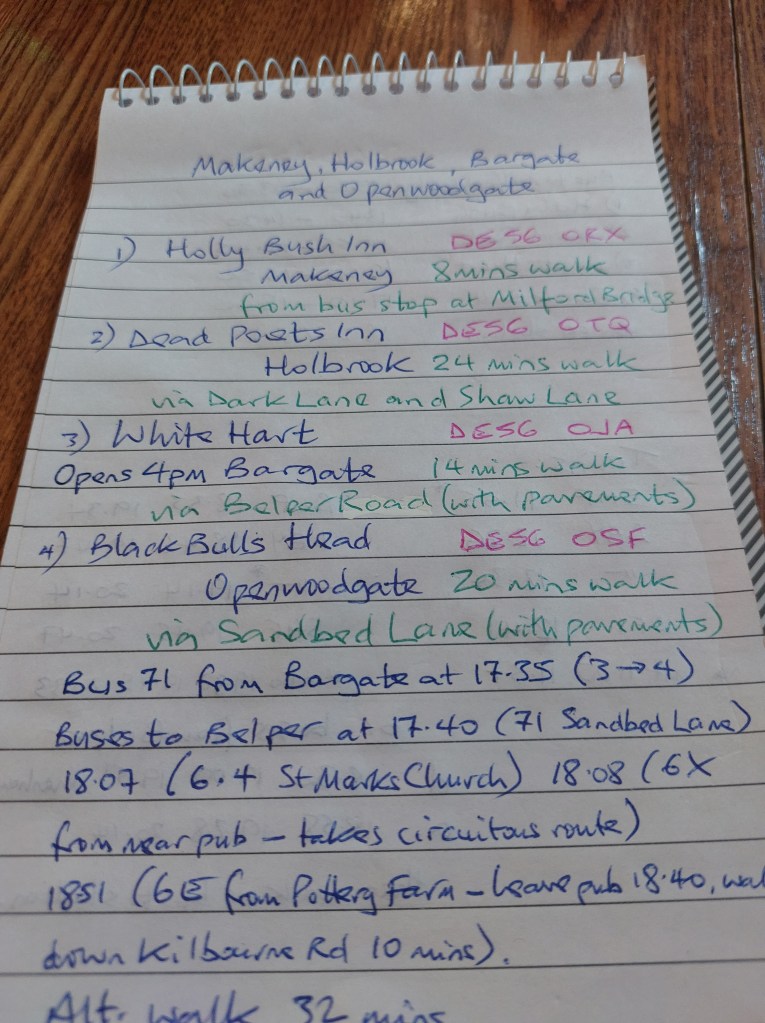 Makeney, Holbrook, Bargate
and Openwoodgate
1) Holly Bush Inn DE56 0RX
Makeney 8 mins walk
from bus stop at Milford Bridge
2) Dead Poets Inn DE56 0TQ
Holbrook 24 mins walk
via Dark Lane and Shaw Lane
3) White Hart DE56 0JA
Opens 4pm Bargate 14 mins walk
via Belper Road (with pavements)
4) Black Bulls Head DE56 0SF
Openwoodgate 20 mins walk
via Sandbed Lane (with pavements)
Bus 71 from Bargate at 17.35 (3→4)
Buses to Belper at 17.40 (71 Sandbed Lane)
18.07 (6.4 St Marks Church) 18.08 (6X
from near pub - takes circuitous route)
1851 (6E from Pottery Farm - leave pub 18.40, wal
down Kilbourne Rd 10 mins).
Alt. walk 32 mins